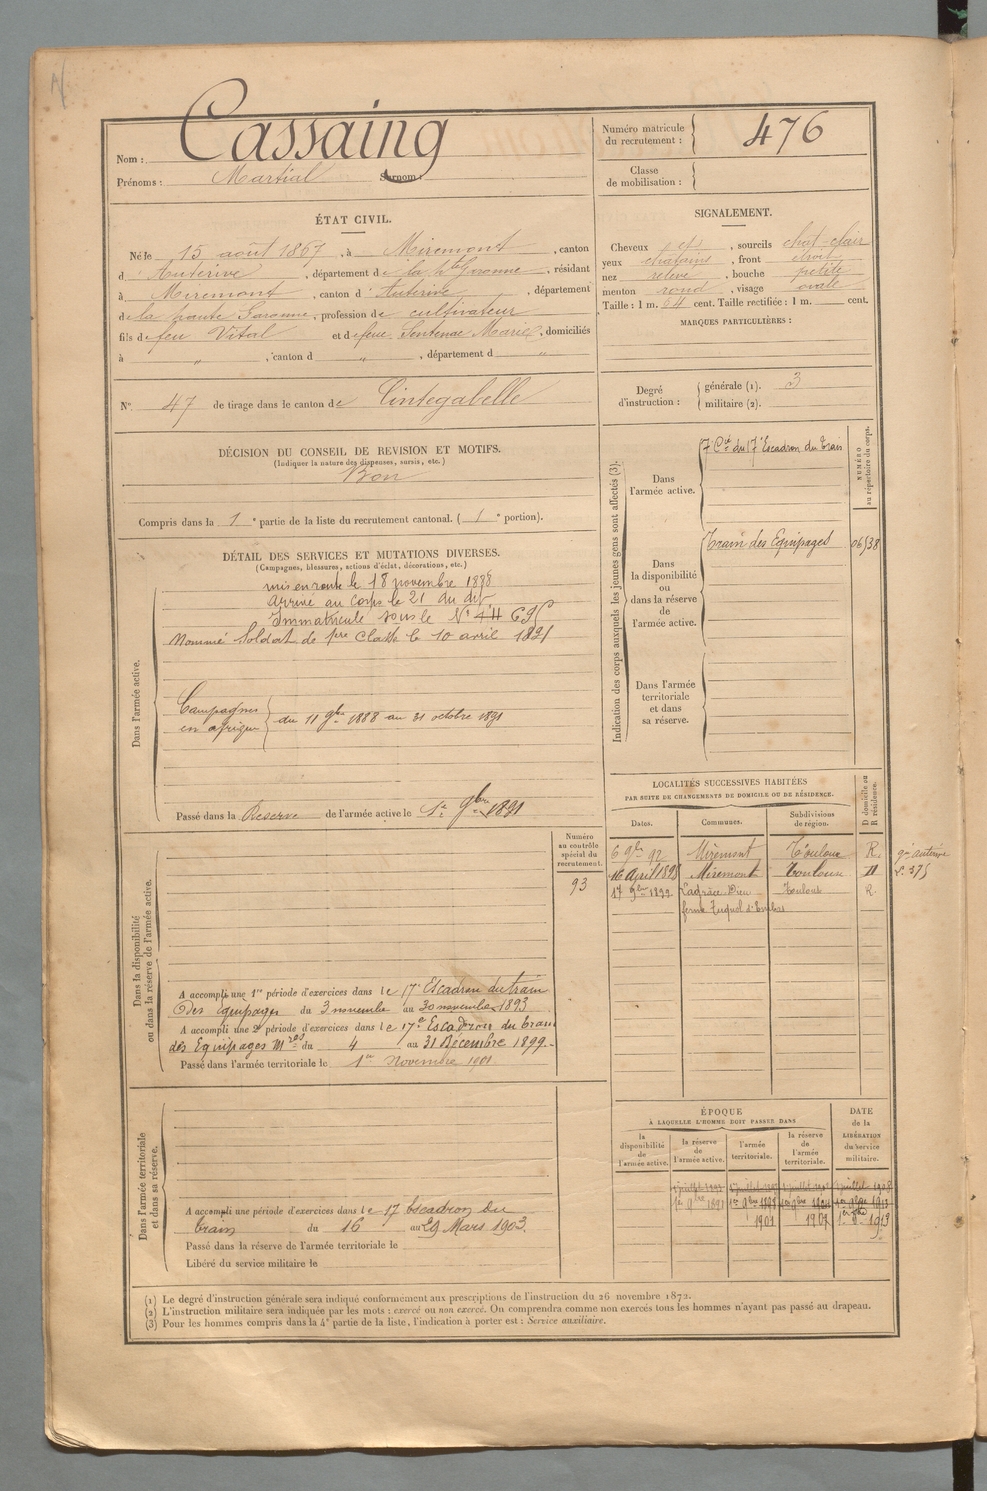 Nom : Cassaing
Prénoms : Martial Surnom :
Numéro matricule du recrutement : 476
Classe de mobilisation :
ÉTAT CIVIL.
Né le 15 août 1867, à Miremont, canton
d'Auterive, département de la hte Garonne, résidant
à Miremont, canton d'Auterive, département
de la haute Garonne, profession de cultivateur
fils de feu Vital et de feue Sentenac Marie, domiciliés
à „ , canton d „ , département d „
N° 47 de tirage dans le canton de Cintegabelle
SIGNALEMENT.
Cheveux cts, sourcils chat-clair
yeux chatains, front étroit
nez relevé, bouche petite
menton rond, visage ovale
Taille : 1 m. 64 cent. Taille rectifiée : 1 m. cent.
MARQUES PARTICULIÈRES :
Degré d'instruction : générale (1). 3
militaire (2).
DÉCISION DU CONSEIL DE REVISION ET MOTIFS.
(Indiquer la nature des dispenses, sursis, etc.)
Bon
Compris dans la 1e partie de la liste du recrutement cantonal. (1e portion).
DÉTAIL DES SERVICES ET MUTATIONS DIVERSES.
(Campagnes, blessures, actions d'éclat, décorations, etc.)
Dans l'armée active.
mis en route le 18 novembre 1888
arrivé au corps le 21 du dit
Immatriculé sous le N°
Nommé Soldat de 1re classe le 10 avril 1891
Campagnes
en afrique
du 11 9bre 1888 au 31 octobre 1891
Passé dans la Reserve de l'armée active le 1er 9bre 1891
Indication des corps auxquels les jeunes gens sont affectés (3).
NUMÉRO au répertoire du corps.
Dans l'armée active.
7e Cie du 17e Escadron du Train
Dans la disponibilité ou dans la réserve de l'armée active.
Train des Equipages
Dans l'armée territoriale et dans sa réserve.
LOCALITÉS SUCCESSIVES HABITÉES
PAR SUITE DE CHANGEMENTS DE DOMICILE OU DE RÉSIDENCE.
D domicile ou R résidence.
Dates. Communes. Subdivisions de région.
6 9bre 92 Miremont Toulouse R.
16 April 1898 Miremont Toulouse D
17 9bre 1899 Lagrâce Dieu Toulouse R.
Dans la disponibilité ou dans la réserve de l'armée active.
Numéro au contrôle spécial du recrutement.
93
A accompli une 1re période d'exercices dans le 17e Escadron du train
des Equipages du 3 novembre au 30 novembre 1893
A accompli une 2e période d'exercices dans le 17e Escadron du train
des Equipages mres du 4 au 31 Décembre 1899.-
Passé dans l'armée territoriale le 1er Novembre 1901.
Dans l'armée territoriale et dans sa réserve.
A accompli une période d'exercices dans le 17 Escadron du
train du 16 au 29 Mars 1903.
Passé dans la réserve de l'armée territoriale le
Libéré du service militaire le
ÉPOQUE
À LAQUELLE L'HOMME DOIT PASSER DANS
DATE de la LIBÉRATION du service militaire.
la disponibilité de l'armée active.
la réserve de l'armée active.
l'armée territoriale.
la réserve de l'armée territoriale.
1901 1907 1913
(1) Le degré d'instruction générale sera indiqué conformément aux prescriptions de l'instruction du 26 novembre 1872.
(2) L'instruction militaire sera indiquée par les mots : exercé ou non exercé. On comprendra comme non exercés tous les hommes n'ayant pas passé au drapeau.
(3) Pour les hommes compris dans la 4e partie de la liste, l'indication à porter est : Service auxiliaire.